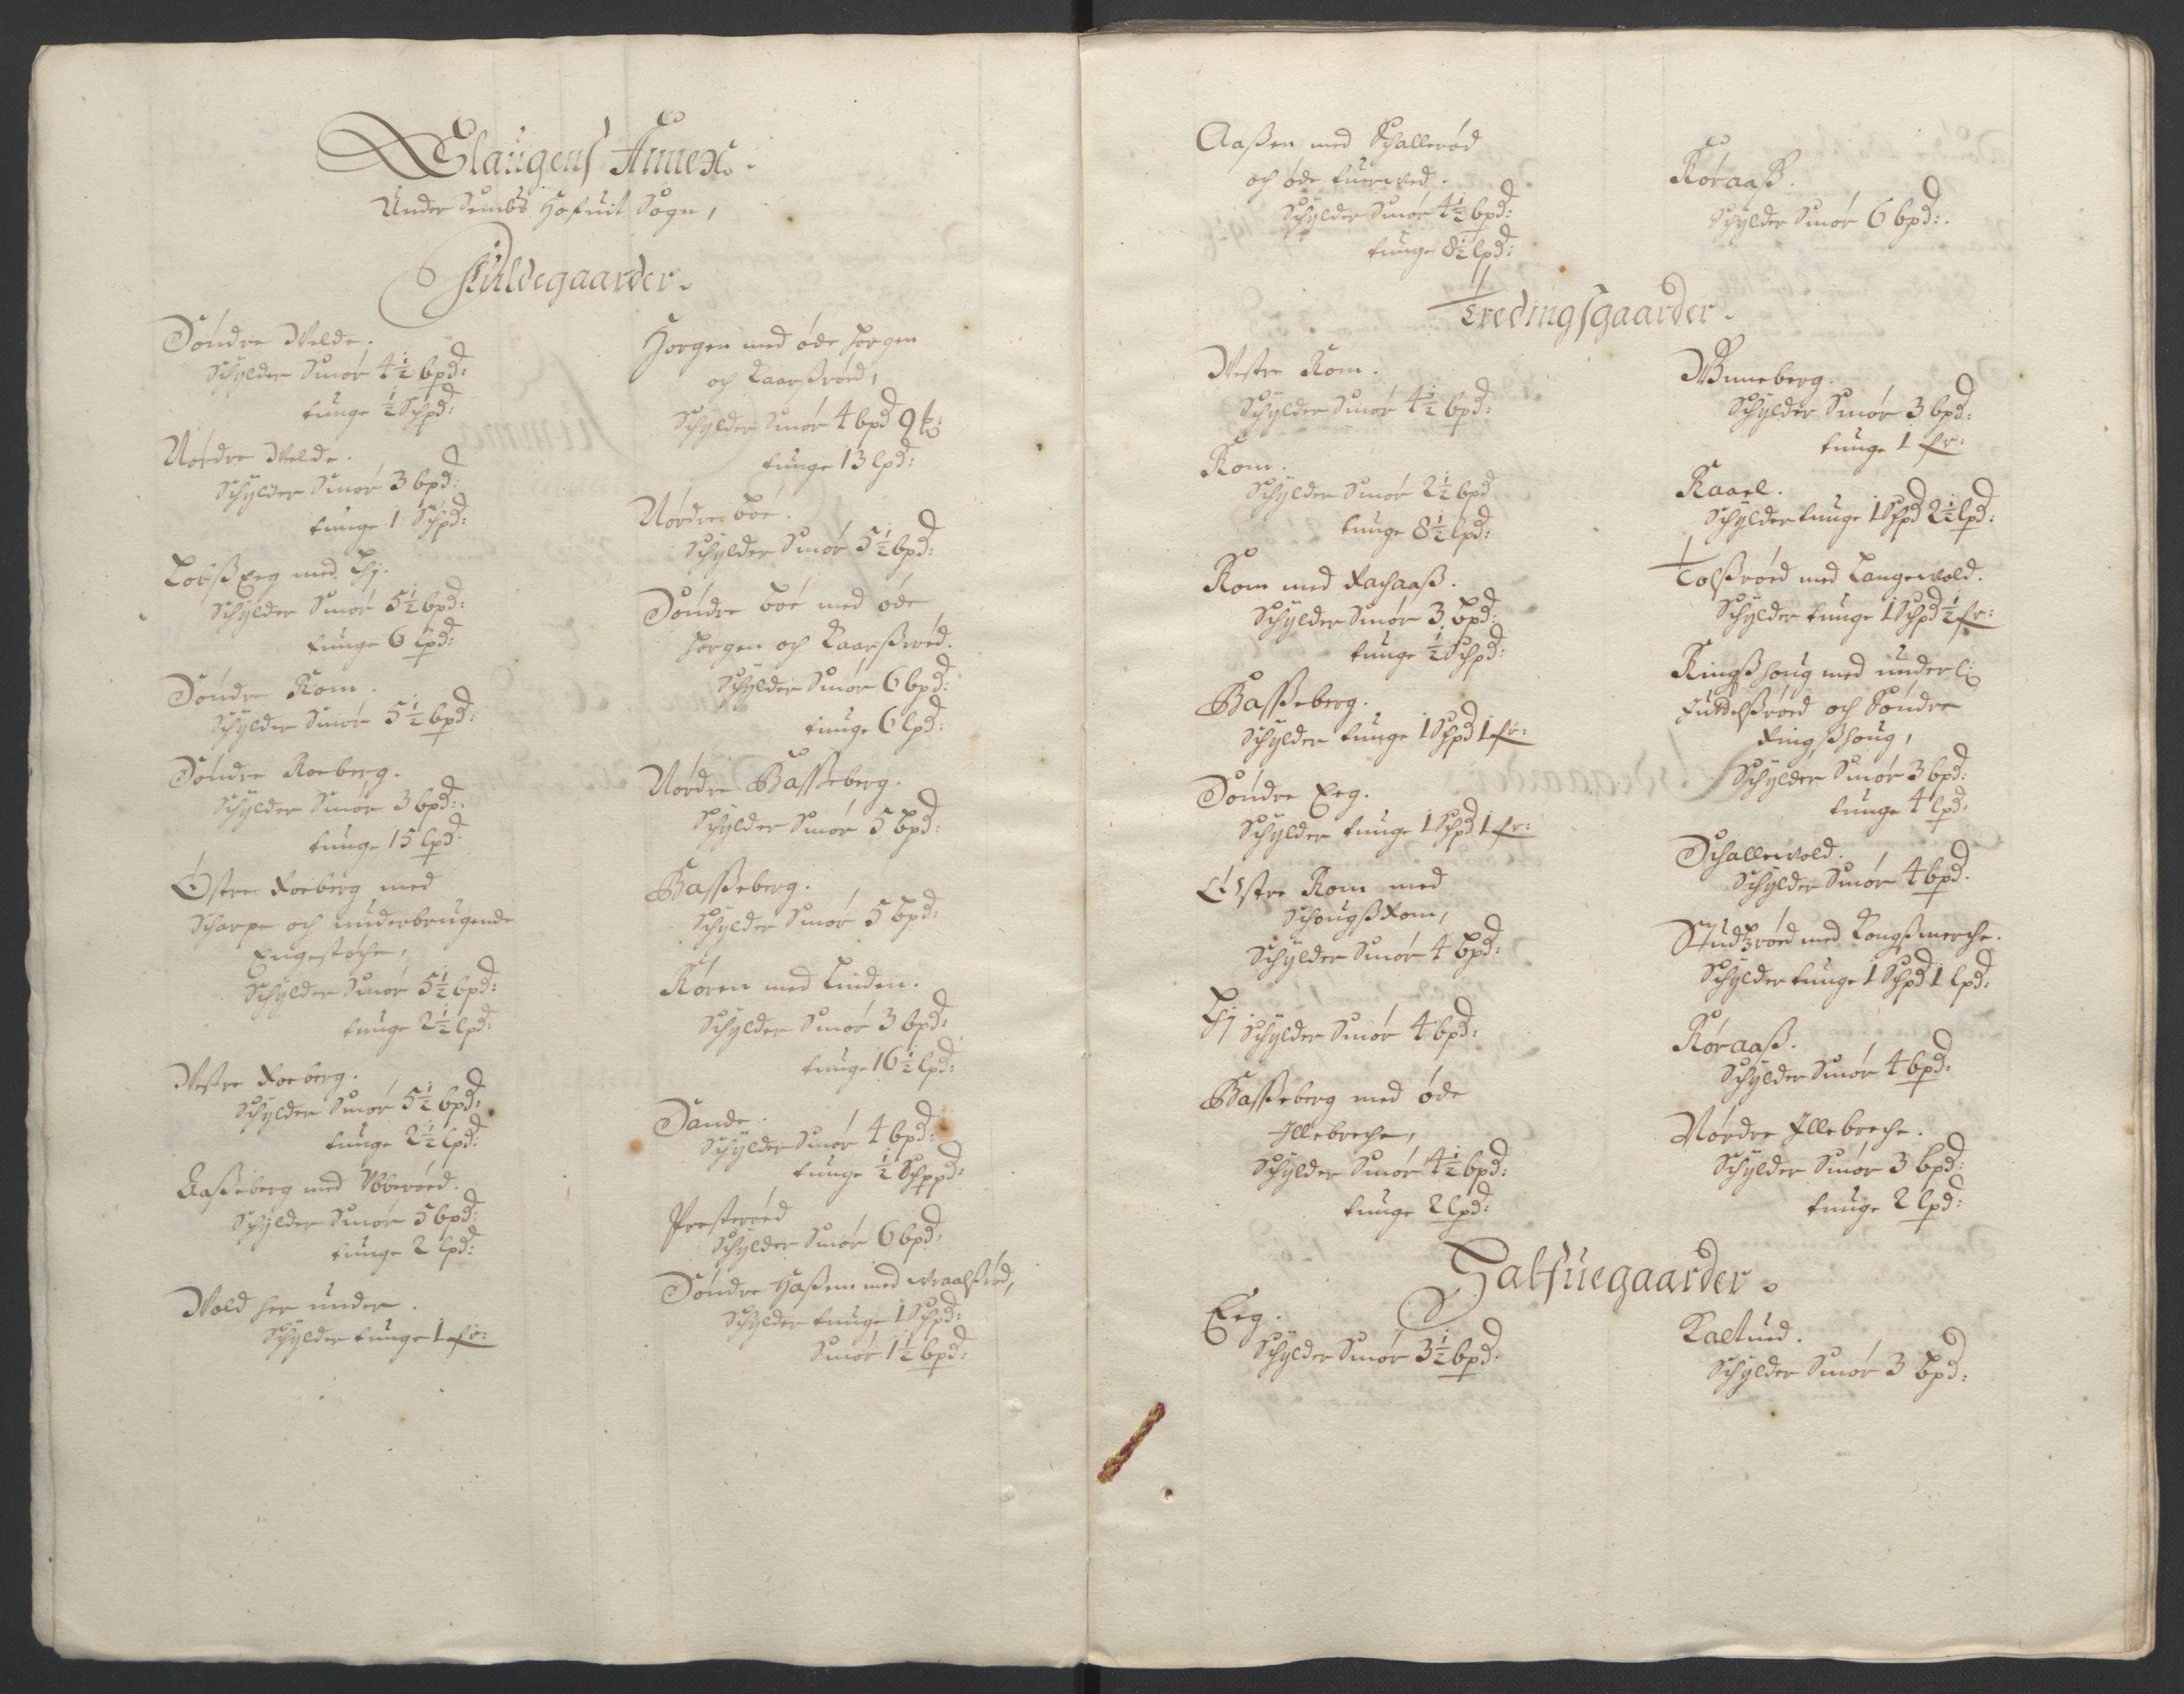 Slaugens Annex.
Under Sembs Hofuit Sogn,
Fuldegaarder.
Søndre Velde.
Schylder Smør 4½ bpd:
tunge ½ Schpd:
Nørdre Velde.
Schylder Smør 3 bpd:
tunge 1 Schpd:
Eeg med Lhj.
Schylder Smør 5½ bpd:
tunge 6 lpd:
Søndre Rom.
Schylder Smør 5½ bpd:
Søndre Roeberg.
Schylder Smør 3 bpd:
tunge 15 lpd:
Østre Roeberg med
Scharpe och underbrugende
Engestøche,
Schylder Smør 5½ bpd:
tunge 2½ lpd:
Vestre Roeberg.
Schylder Smør 5½ bpd:
tunge 2½ lpd:
Raaßeberg med
Schylder Smør 5 bpd:
tunge 2 lpd:
Vold her under.
Schylder tunge 1 fr:
Horgen med øde horgen
och Kaarßrøed,
Schylder Smør 4 bpd 9
tunge 13 lpd:
Nørdre Bøe.
Schylder Smør 5½ bpd:
Søndre Bøe med øde
horgen och Kaarßrøed.
Schylder Smør 6 bpd:
tunge 6 lpd:
Nørdre Basseberg.
Schylder Smør 5 bpd:
Basseberg.
Schylder Smør 5 bpd:
Røren med Linden.
Schylder Smør 3 bpd:
tunge 16½ lpd:
Sande.
Schylder Smør 4 bpd:
tunge ½ Schppd:
Presterøed
Schylder Smør 6 bpd:
Søndre Haßem med Vraalßrød,
Schylder tunge 1 Schpd:
Smør 1½ bpd:
Aaßen med Schallerød
och øde
Schylder Smør 4½ bpd:
tunge 8½ lpd:
Røraaß.
Schylder Smør 6 bpd:
Tredingsgaarder.
Vestre Rom.
Schylder Smør 4½ bpd:
Rom.
Schylder Smør 2½ bpd
tunge 8½ lpd:
Rom med Rachaaß.
Schylder Smør 3 bpd:
tunge ½ Schpd:
Basseberg.
Schylder tunge 1 Schpd 1 fr:
Søndre Eeg.
Schylder tunge 1 Schpd 1 fr:
Østre Rom med
SchougßRom,
Schylder Smør 4 bpd:
Lhj
Schylder Smør 4 bpd:
Basseberg med øde
Illebreche,
Schylder Smør 4½ bpd:
tunge 2 lpd:
Unneberg.
Schylder Smør 3 bpd:
tunge 1 fr:
Raael.
Schylder tunge 1 Schpd 2½ lpd:
Tolßrøed med Langevold.
Schylder tunge 1 Schpd ½ fr:
Ringßhoug med underl:
och Søndre
Ringßhoug,
Schylder Smør 3 bpd:
tunge 4 lpd:
Schallevold.
Schylder Smør 4 bpd.
Studzrøed med Kongßmerche.
Schylder tunge 1 Schpd 1 lpd:
Røraaß.
Schylder Smør 4 bpd:
Nørdre Illebreche.
Schylder Smør 3 bpd:
tunge 2 lpd:
Halfuegaarder.
Eeg.
Schylder Smør 3½ bpd:
Kaltued.
Schylder Smør 3 bpd: